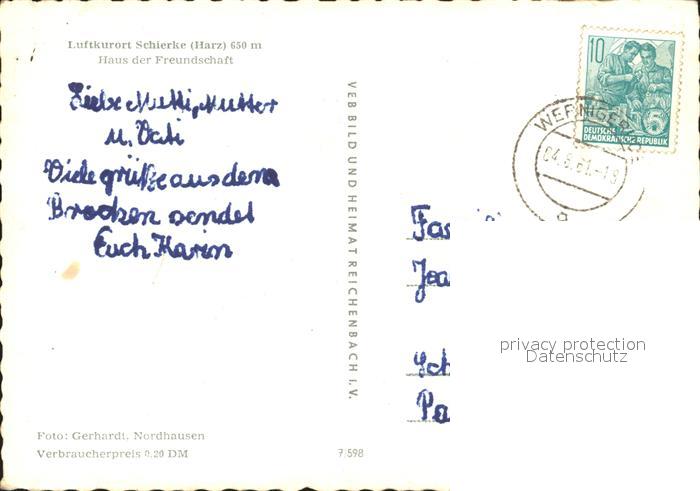 Luftkurort Schierke (Harz) 650 m
Haus der Freundschaft
Liebe Mutti, Mutter
u. Vati
Viele grüße aus dem
Brocken sendet
Euch Karin
Foto: Gerhardt, Nordhausen
Verbraucherpreis 0.20 DM
VEB BILD UND HEIMAT REICHENBACH I. V.
7/598
10
5
DEUTSCHE
DEMOKRATISCHE REPUBLIK
WERNIGER
a
Fa
Jea
Sch
Pa
privacy protection
Datenschutz